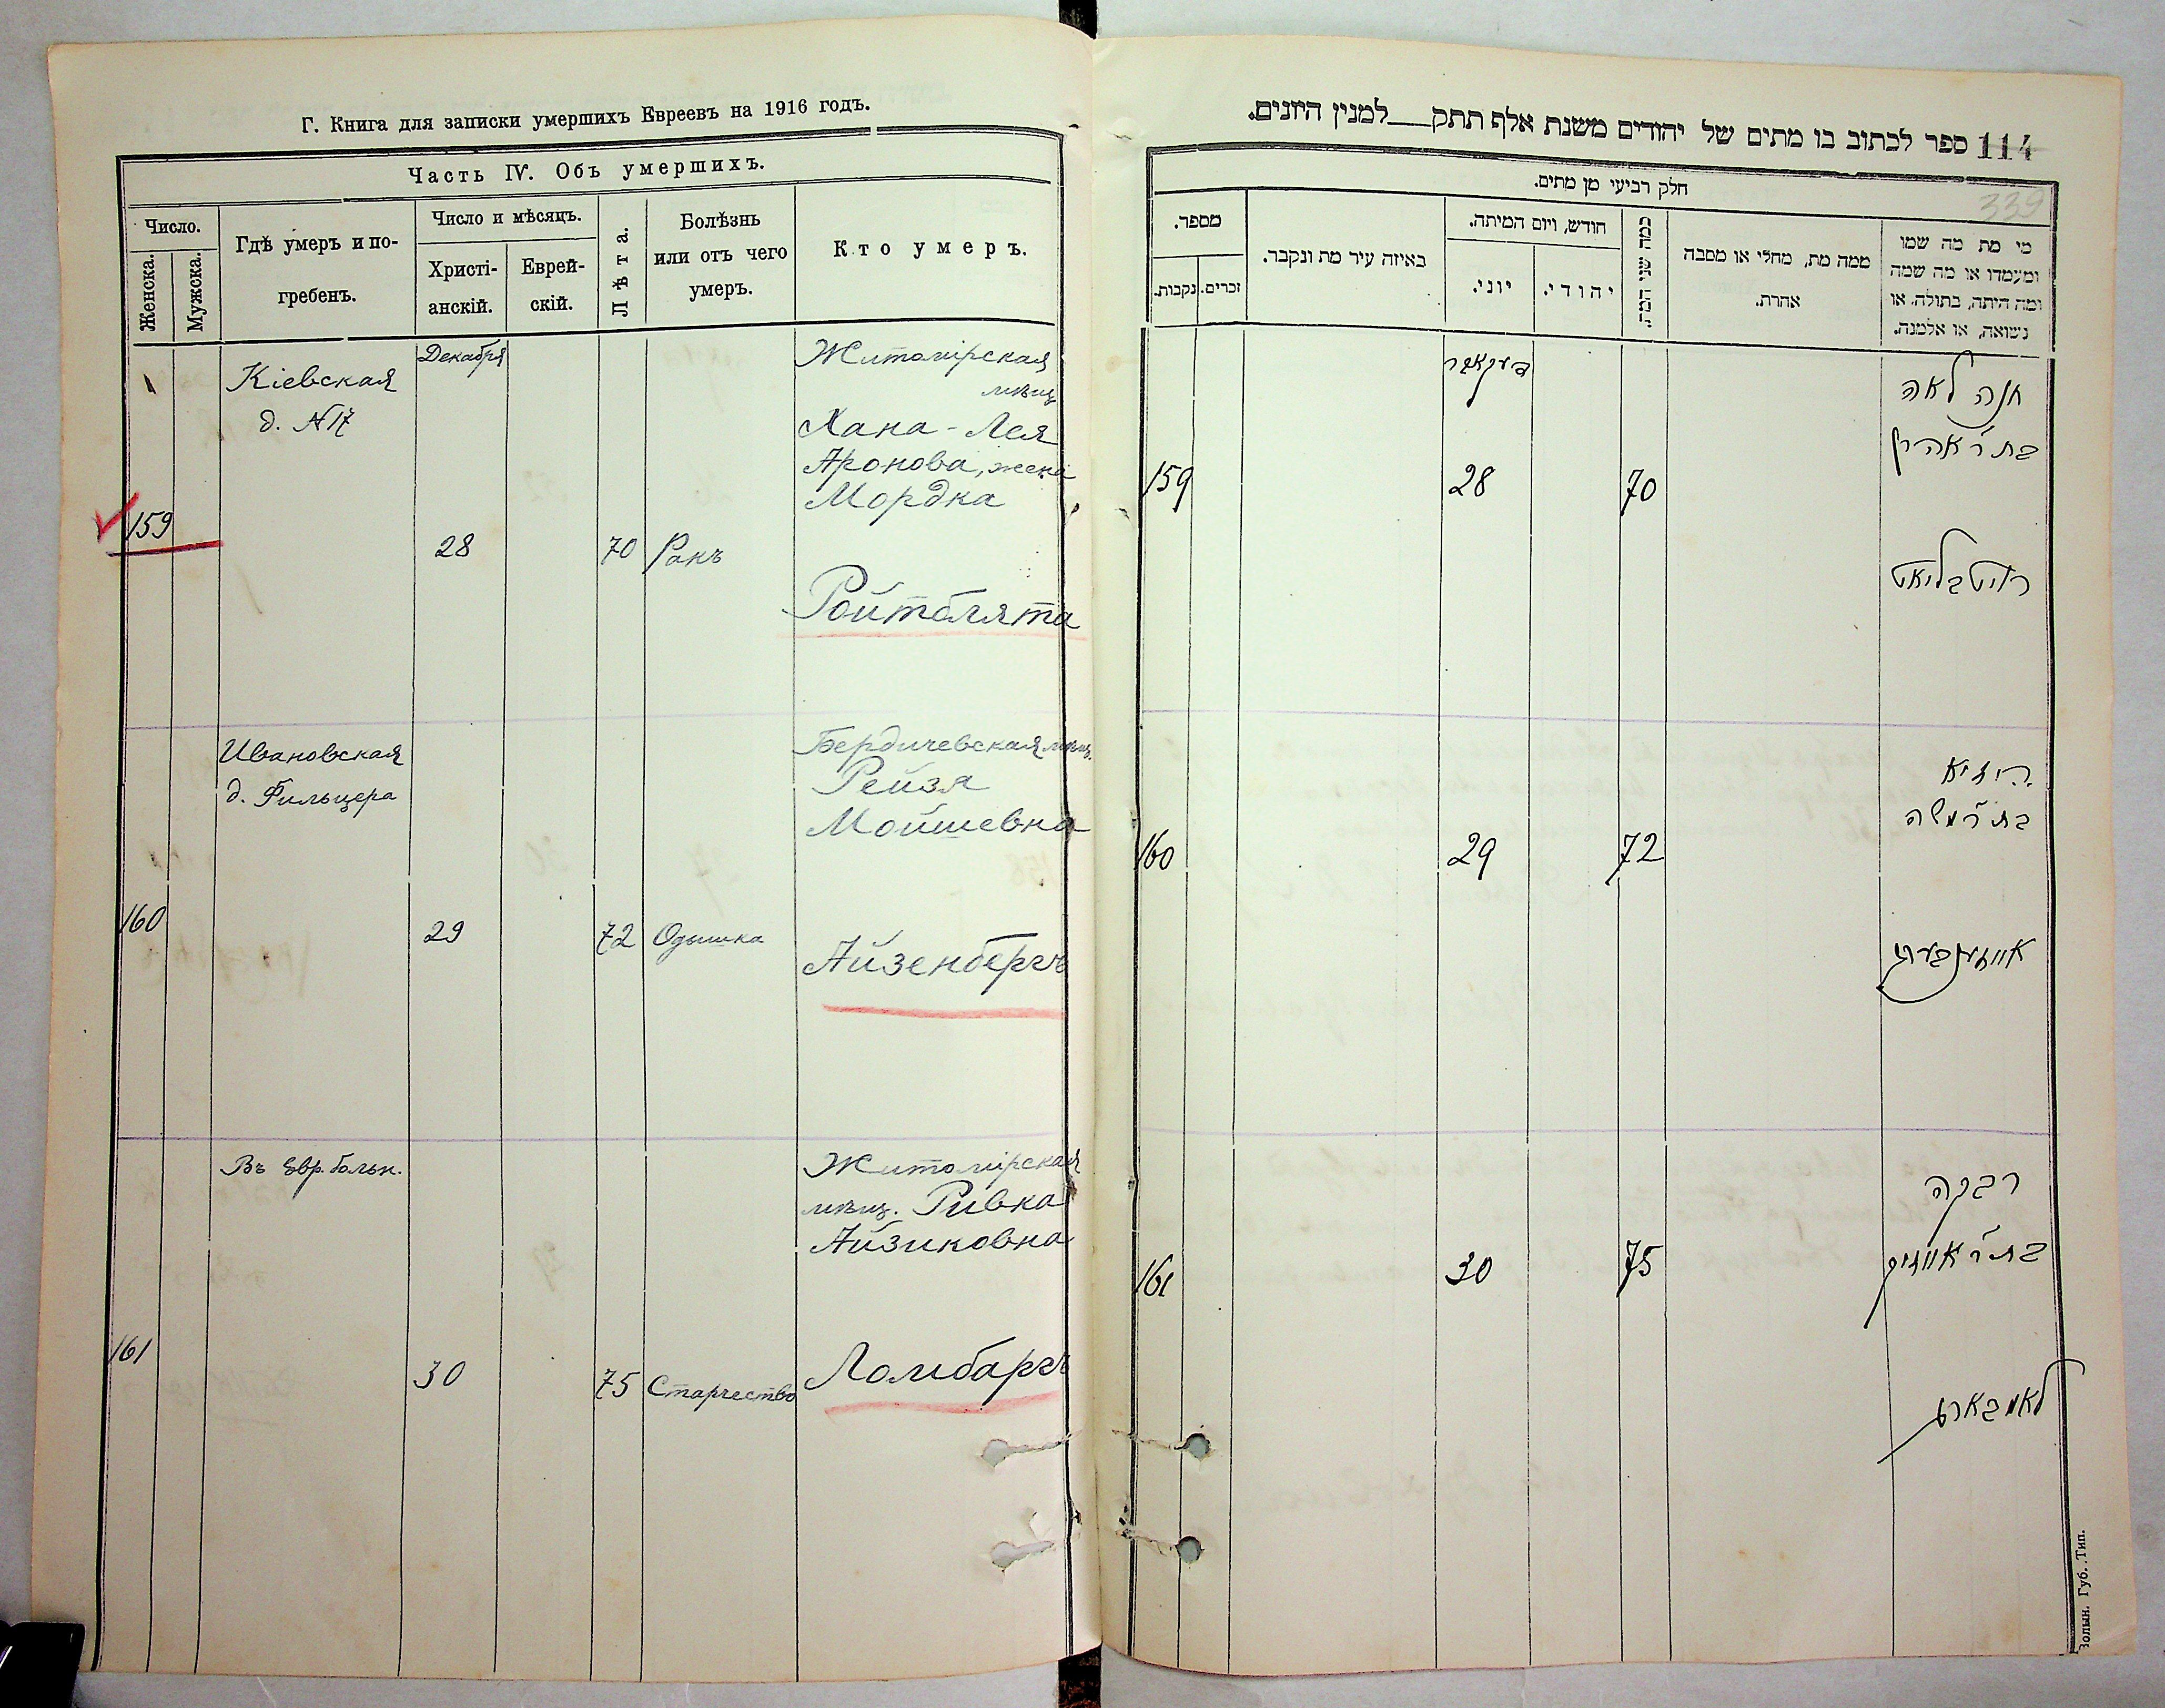 Г. Книга для записки умершихъ Евреевъ на 1916 годъ.
Часть IV. Объ умершихъ.
Число.
Женска.
Мужска.
Гдѣ умеръ и по-
гребенъ.
Число и мѣсяцъ.
Христі-
анскій.
Еврей-
скій.
Лѣта.
Болѣзнь
или отъ чего
умеръ.
Кто умеръ.
Кіевская
д. №17
Декабря
Житомірская
мѣщ
Хана-Лея
Аронова, жена
Мордка
159
28
70
Ракъ
Ройтблята
Ивановская
д. Фильцера
Бердичевская мѣщ.
Рейзя
Мойшевна
160
29
72
Одышка
Айзенбергъ
Въ Евр. больн.
Житомірская
мѣщ. Ривка
Айзиковна
161
30
75
Старчество
Ломбаргъ
114 ספר לכתוב בו מתים של יהודים משנת אלף תתק__למנין היונים.
339
חלק רביעי מן מתים.
מספר.
נקבות.
זכרים.
באיזה עיר מת ונקבר.
חודש, ויום המיתה.
יוני.
יהודי.
כמה שני המת.
ממה מת, מחלי או מסבה
אחרת.
מי מת מה שמו
ומעמדו או מה שמה
ומה היתה, בתולה, או
נשואה, או אלמנה.
דעקאבר
חנה לאה
בת ר' אהרן
159
28
70
רויטבליאט
רייזיא
בת ר' משה
160
29
72
אייזענבערג
רבקה
בת ר' אייזיק
161
30
75
לאמבארג
Волын. Губ. Тип.